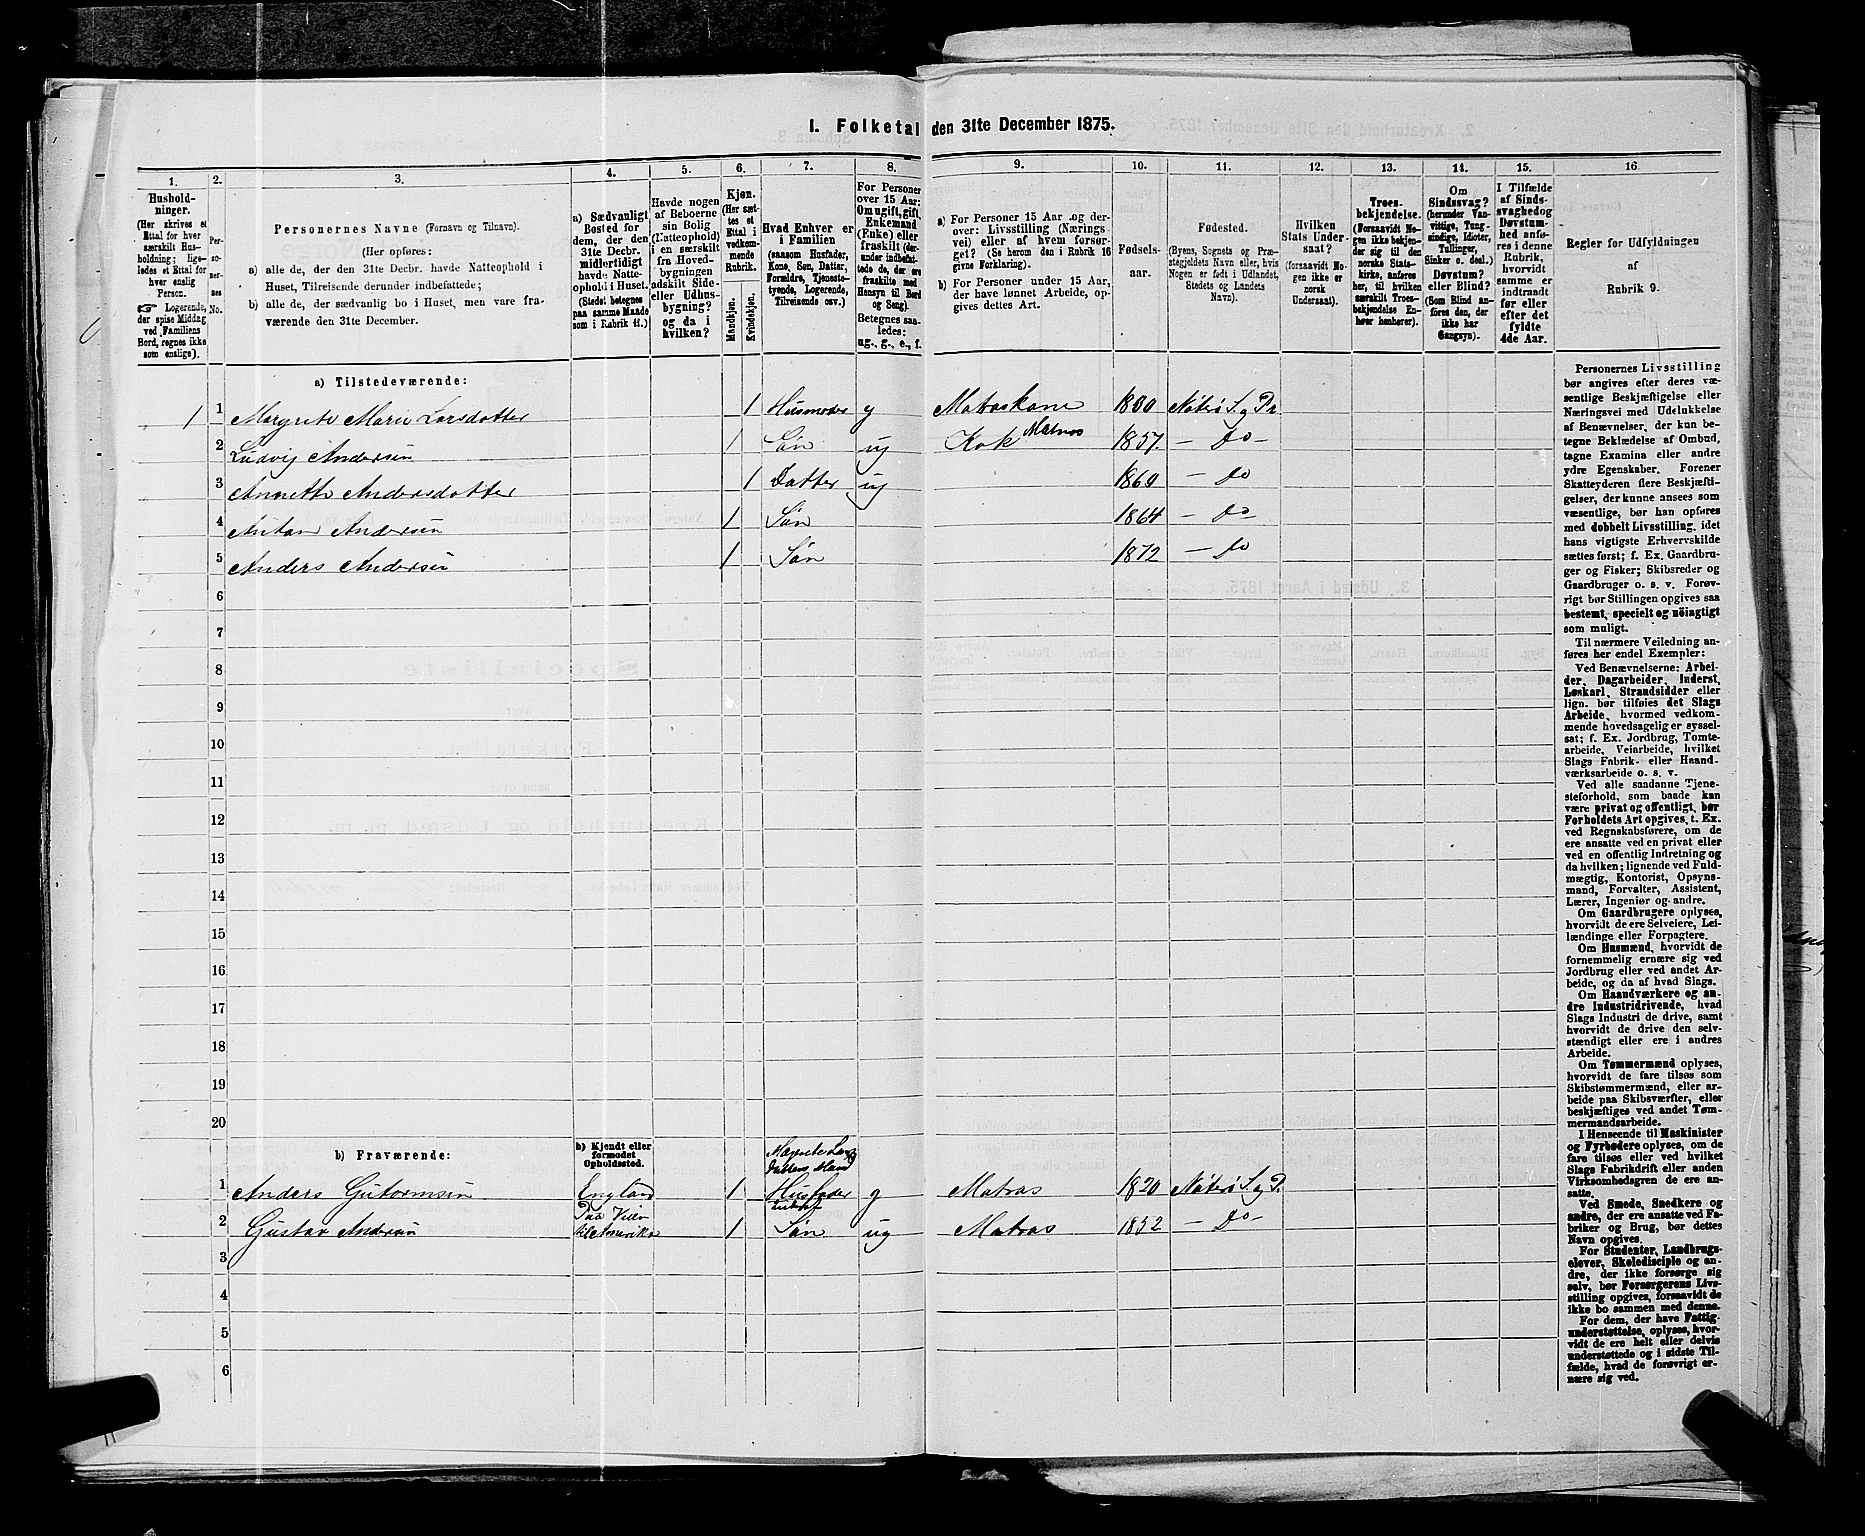 1. Folketal den 31te December 1875.
1.
2.
3.
4.
5.
6.
7.
8.
9.
10.
11.
12.
13.
14.
15.
16
Husholdninger.
(Her skrives et Ettal for hver særskilt Husholdning; ligeledes et Ettal for hver enslig Person.
☞ Logerende, der spise Middag ved Familiens Bord, regnes ikke som enslige).
Personernes No.
Personernes Navne (Fornavn og Tilnavn).
(Her opføres:
a) alle de, der den 31te Decbr. havde Natteophold i Huset, Tilreisende derunder indbefattede;
b) alle de, der sædvanlig bo i Huset, men vare fraværende den 31te December.
a) Sædvanligt Bosted for dem, der den 31te Decbr. midlertidigt havde Natteophold i Huset. (Stedet betegnes paa samme Maade som i Rubrik 11.)
Havde nogen af Beboerne sin Bolig (Natteophold) i en særskilt fra Hovedbygningen adskilt Side- eller Udhusbygning? og da i hvilken?
Kjøn. (Her sættes et Ettal i vedkommende Rubrik.
Mandkjøn.
Kvindekjøn.
Hvad Enhver er i Familien
(saasom Husfader, Kone, Søn, Datter, Forældre, Tjenestetyende, Logerende, Tilreisende osv.)
For Personer over 15 Aar: Om ugift, gift, Enkemand (Enke) eller fraskilt (derunder indbefattede de, der ere fraskilte med Hensyn til Bord og Seng)
Betegnes saaledes: ug., g., e., f.
a) For Personer 15 Aar og derover: Livsstilling (Næringsvei) eller af hvem forsørget? (Se herom den i Rubrik 16 givne Forklaring).
b) For Personer under 15 Aar, der have lønnet Arbeide, opgives dettes Art.
Fødselsaar.
Fødested.
(Byens, Sognets og Præstegjeldets Navn eller, hvis Nogen er født i Udlandet, Stedets og Landets Navn).
Hvilken Stats Undersaat?
(forsaavidt Nogen ikke er norsk Undersaat).
Troesbekjendelse.
(Forsaavidt Nogen ikke bekjender sig til den norske Statskirke, anføres her, til hvilken særskilt Troesbekjendelse Enhver henhører).
Om Sindssvag? (herunder Vanvittige, Tungsindige, Idioter, Tullinger, Sinker o. desl.)
Døvstum? eller Blind? (Som Blind anføres den, der ikke har Gangsyn).
I Tilfælde af Sindssvaghed og Døvstumhed anføres i denne Rubrik, hvorvidt samme er indtraadt før eller efter det fyldte 4de Aar.
Regler for Udfyldningen af Rubrik 9.
a) Tilstedeværende:
1 1 Margrete Marie Larsdatter 1 Husmoder g Matroskone 1830 Nøterø S. g Pr
2 Ludvig Andersen 1 Søn ug Kok Matros 1857. — Do —
3 Annette Andersdatter 1 Datter ug 1860 — Do
4 Anton Andersen 1 Søn 1864 — Do
5 Anders Andersen 1 Søn 1872 — Do
6
7
8
9
10
11
12
13
14
15
16
17
18
19
20
b) Fraværende:
b) Kjendt eller formodet Opholdssted.
1 Anders Gutormsen England 1 Husfader g Matros 1820 Nøterø S. g P.
2 Gustav Andersen Paa Veien til Amerika 1 Søn ug Matros 1852 — Do —
3
4
5
6
Personernes Livsstilling bør angives efter deres væsentlige Beskjæftigelse eller Næringsvei med Udelukkelse af Benævnelser, der kun betegne Beklædelse af Ombud, tagne Examina eller andre ydre Egenskaber. Forener Skatteyderen flere Beskjæftigelser, der kunne ansees som væsentlige, bør han opføres med dobbelt Livsstilling, idet hans vigtigste Erhvervskilde sættes først; f. Ex. Gaardbruger og Fisker; Skibsreder og Gaardbruger o. s. v. Forøvrigt bør Stillingen opgives saa bestemt, specielt og nöiagtigt som muligt.
Til nærmere Veiledning anføres her endel Exempler:
Ved Benævnelserne: Arbeider, Dagarbeider, Inderst, Løskarl, Strandsidder eller lign. bør tilføies det Slags Arbeide, hvormed vedkommende hovedsagelig er sysselsat; f. Ex. Jordbrug, Tomtearbeide, Veiarbeide, hvilket Slags Fabrik- eller Haandværksarbeide o. s. v.
Ved alle saadanne Tjenesteforhold, som baade kan være privat og offentligt, bør Forholdets Art opgives, t. Ex. ved Regnskabsførere, om de ere ansatte ved en privat eller ved en offentlig Indretning og da hvilken; lignende ved Fuldmægtig, Kontorist, Opsynsmand, Forvalter, Assistent, Lærer, Ingeniør og andre.
Om Gaardbrugere oplyses, hvorvidt de ere Selveiere, Leilændinge eller Forpagtere.
Om Husmænd, hvorvidt de fornemmelig ernære sig ved Jordbrug eller ved andet Arbeide, og da af hvad Slags.
Om Haandværkere og andre Industridrivende, hvad Slags Industri de drive, samt hvorvidt de drive den selvstændigt eller ere i andres Arbeide.
Om Tømmermænd oplyses, hvorvidt de fare tilsøs som Skibstømmermænd, eller arbeide paa Skibsværfter, eller beskjæftiges ved andet Tømmermandsarbeide.
I Henseende til Maskinister og Fyrbødere oplyses, om de fare tilsøs eller ved hvilket Slags Fabrikdrift eller anden Virksomhedsgren de ere ansatte.
Ved Smede, Snedkere og andre, der ere ansatte ved Fabriker og Brug, bør dettes Navn opgives.
For Studenter, Landbrugselever, Skoledisciple og andre, der ikke forsørge sig selv, bør Forsørgerens Livsstilling opgives, forsaavidt de ikke bo sammen med denne.
For dem, der have Fattigunderstøttelse, oplyses, hvorvidt de ere helt eller delvis understøttede og i sidste Tilfælde, hvad de forøvrigt ernære sig ved.